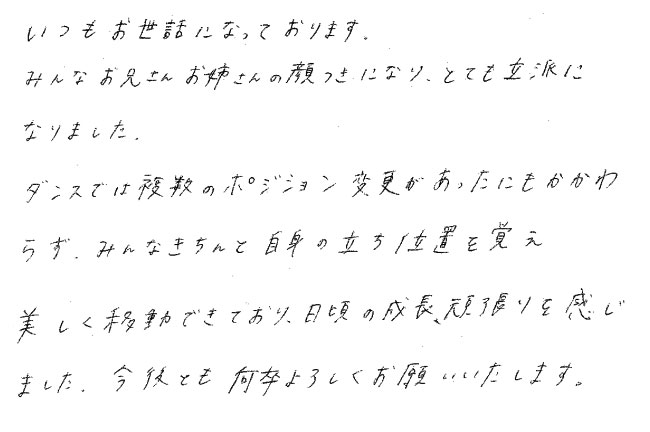 いつもお世話になっております。
みんなお兄さんお姉さんの顔つきになり、とても立派に
なりました。
ダンスでは複数のポジション変更があったにもかかわ
らず、みんなきちんと自身の立ち位置を覚え
美しく移動できており、日頃の成長、頑張りを感じ
ました。今後とも何卒よろしくお願いいたします。